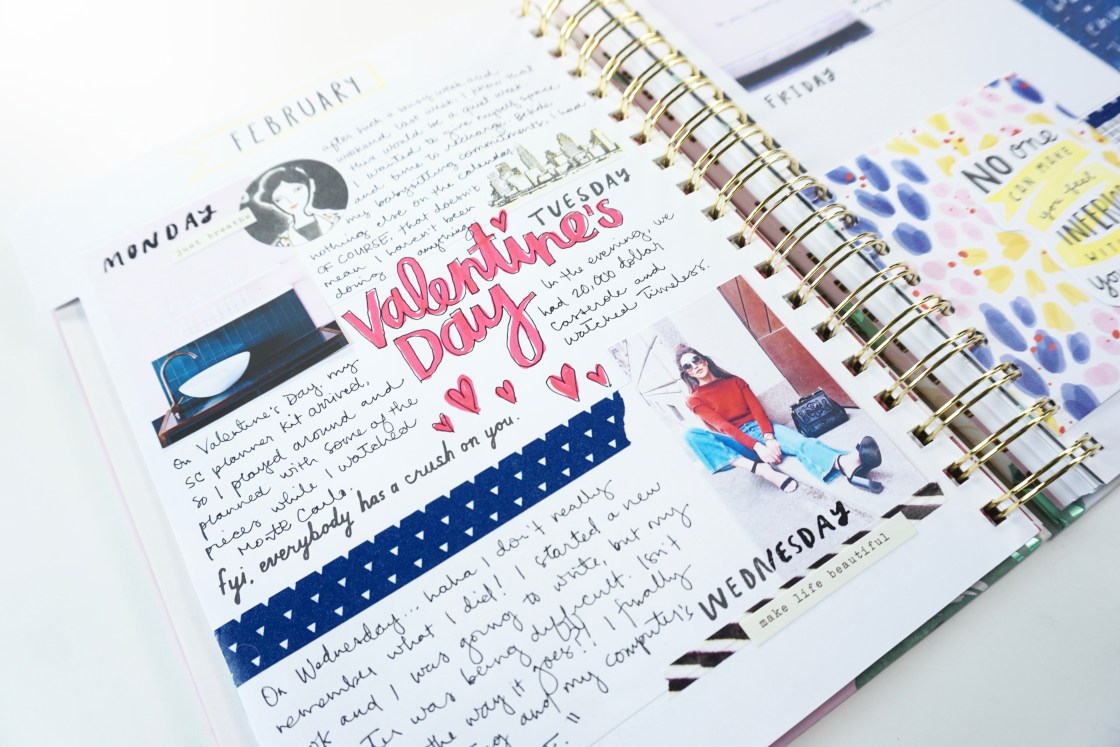 FEBRUARY
MONDAY
just breathe
after such a busy week and
weekend last week, I knew that
this would be a quiet week.
I wanted to give myself space
and time to recharge. Beside
my babysitting commitments, I had
nothing else on the calendar.
OF COURSE, that doesn't
mean I haven't been
doing anything.
TUESDAY
Valentine's
Day
On Valentine's Day, my
SC planner kit arrived,
so I played around and
planned with some of the
pieces while I watched
Monte Carlo.
In the evening, we
had 20,000 dollar
casserole and
watched Timeless.
fyi, everybody has a crush on you.
On Wednesday... haha I don't really
remember what I did! I started a new
and I was going to write, but my
was being difficult. Isn't
the way it goes?! I finally
and my computer's
WEDNESDAY
make life beautiful
FRIDAY
NO one
CAN MAKE
you feel
INFERIOR
WITH
you